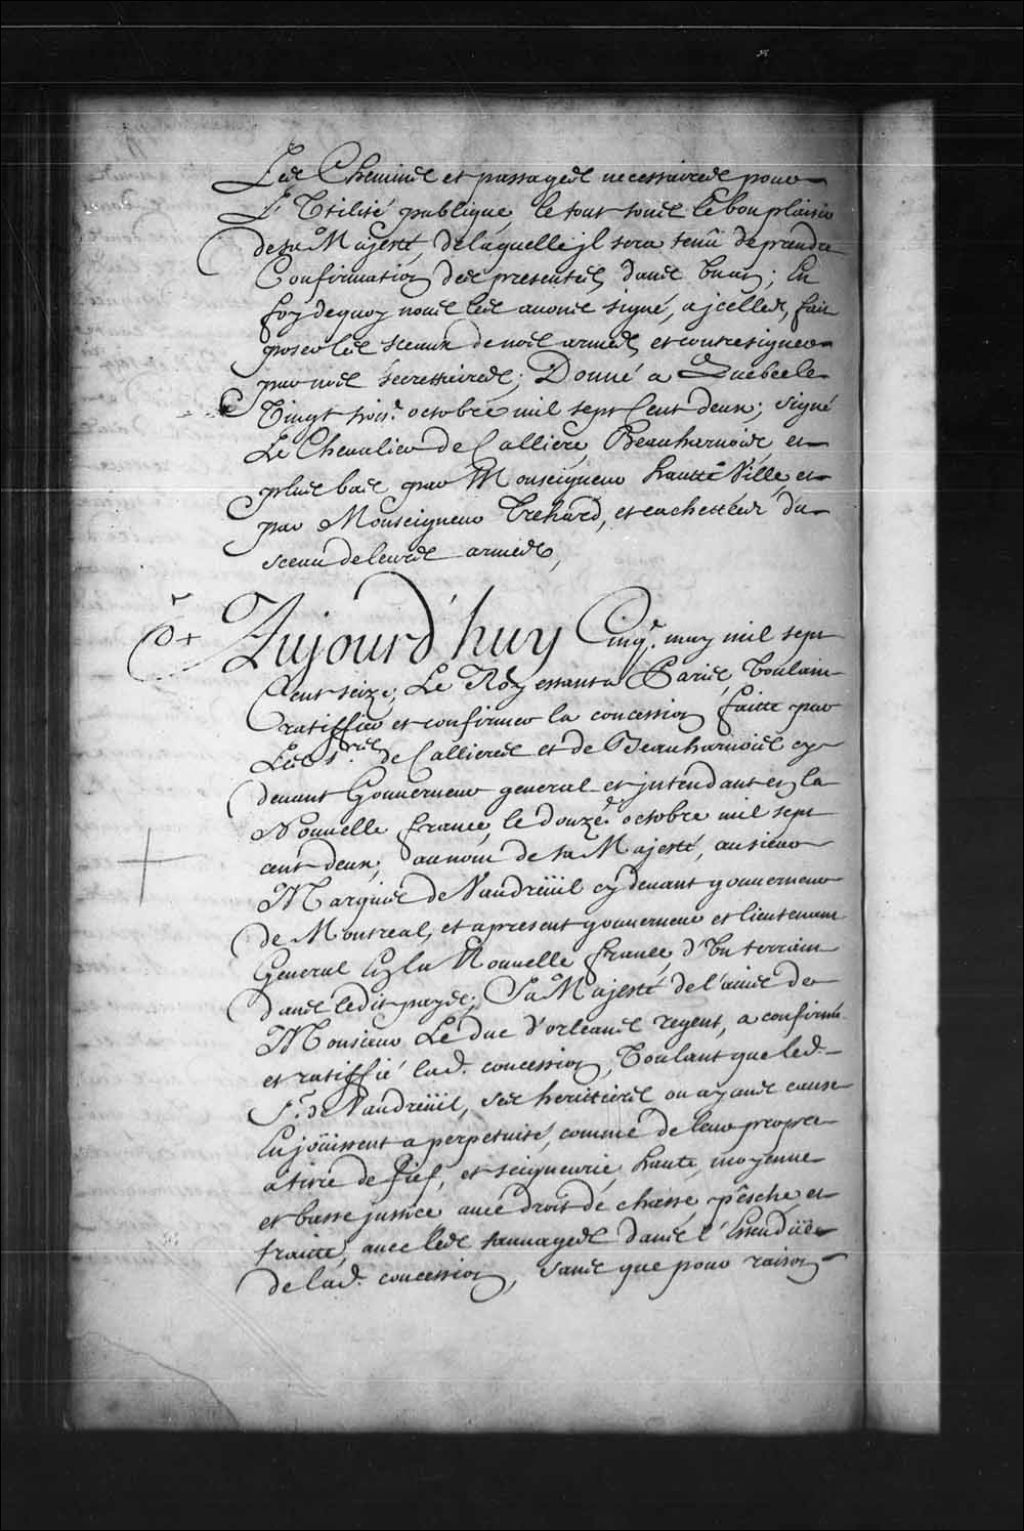 Les Chemins et passages necessaires pour
L'Vtilité publique, le tout sous le bon plaisir
de sa Majesté, de laquelle jl sera tenû de prendre
Confirmation des presentes, dans Vn an; En
foy de quoy nous les auons signé, a jcelles, fait
poser les sceaux de nos armes, et contresigner
par nos secrettaires; Donné a Quebec le
Vingt trois.e octobre mil sept Cent deux; signé
Le Cheualier de Calliere, Beauharnois, et
plus bas, par Monseigneur hautteville, et
par Monseigneur Trehard, et cachettées du
sceau de leurs armes,
Aujourd'huy Cinq.e may mil sept
Cent seize, Le Roy estant a Paris, Voulant
ratiffier et confirmer la concession faitte par
Les S.rs de Callieres et de Beauharnois cy
deuant Gouuerneur general et jntendant en la
Nouuelle france, le douze.e octobre mil sept
cent deux, au nom de sa Majesté, au sieur
Marquis de Vaudreüil cy deuant gouuerneur
de Montreal, et a present gouuerneur et lieutenant
General En la Nouuelle france, d'Vn terrain
dans ledit pays; Sa Majesté de l'auis de
Monsieur Le Duc d'orleans regent, a confirmé
et ratiffié lad. concession, Voulant que led.
S.r de Vaudreüil, ses heritiers ou ayans cause
En joüissent a perpetuité, comme de leur propre
a titre de fief, et seigneurie, haute, moyenne
et basse justice auec droit de chasse, pesche et
traitte, auec les sauuages dans l'Estendüe
de lad. concession, sans que pour raison